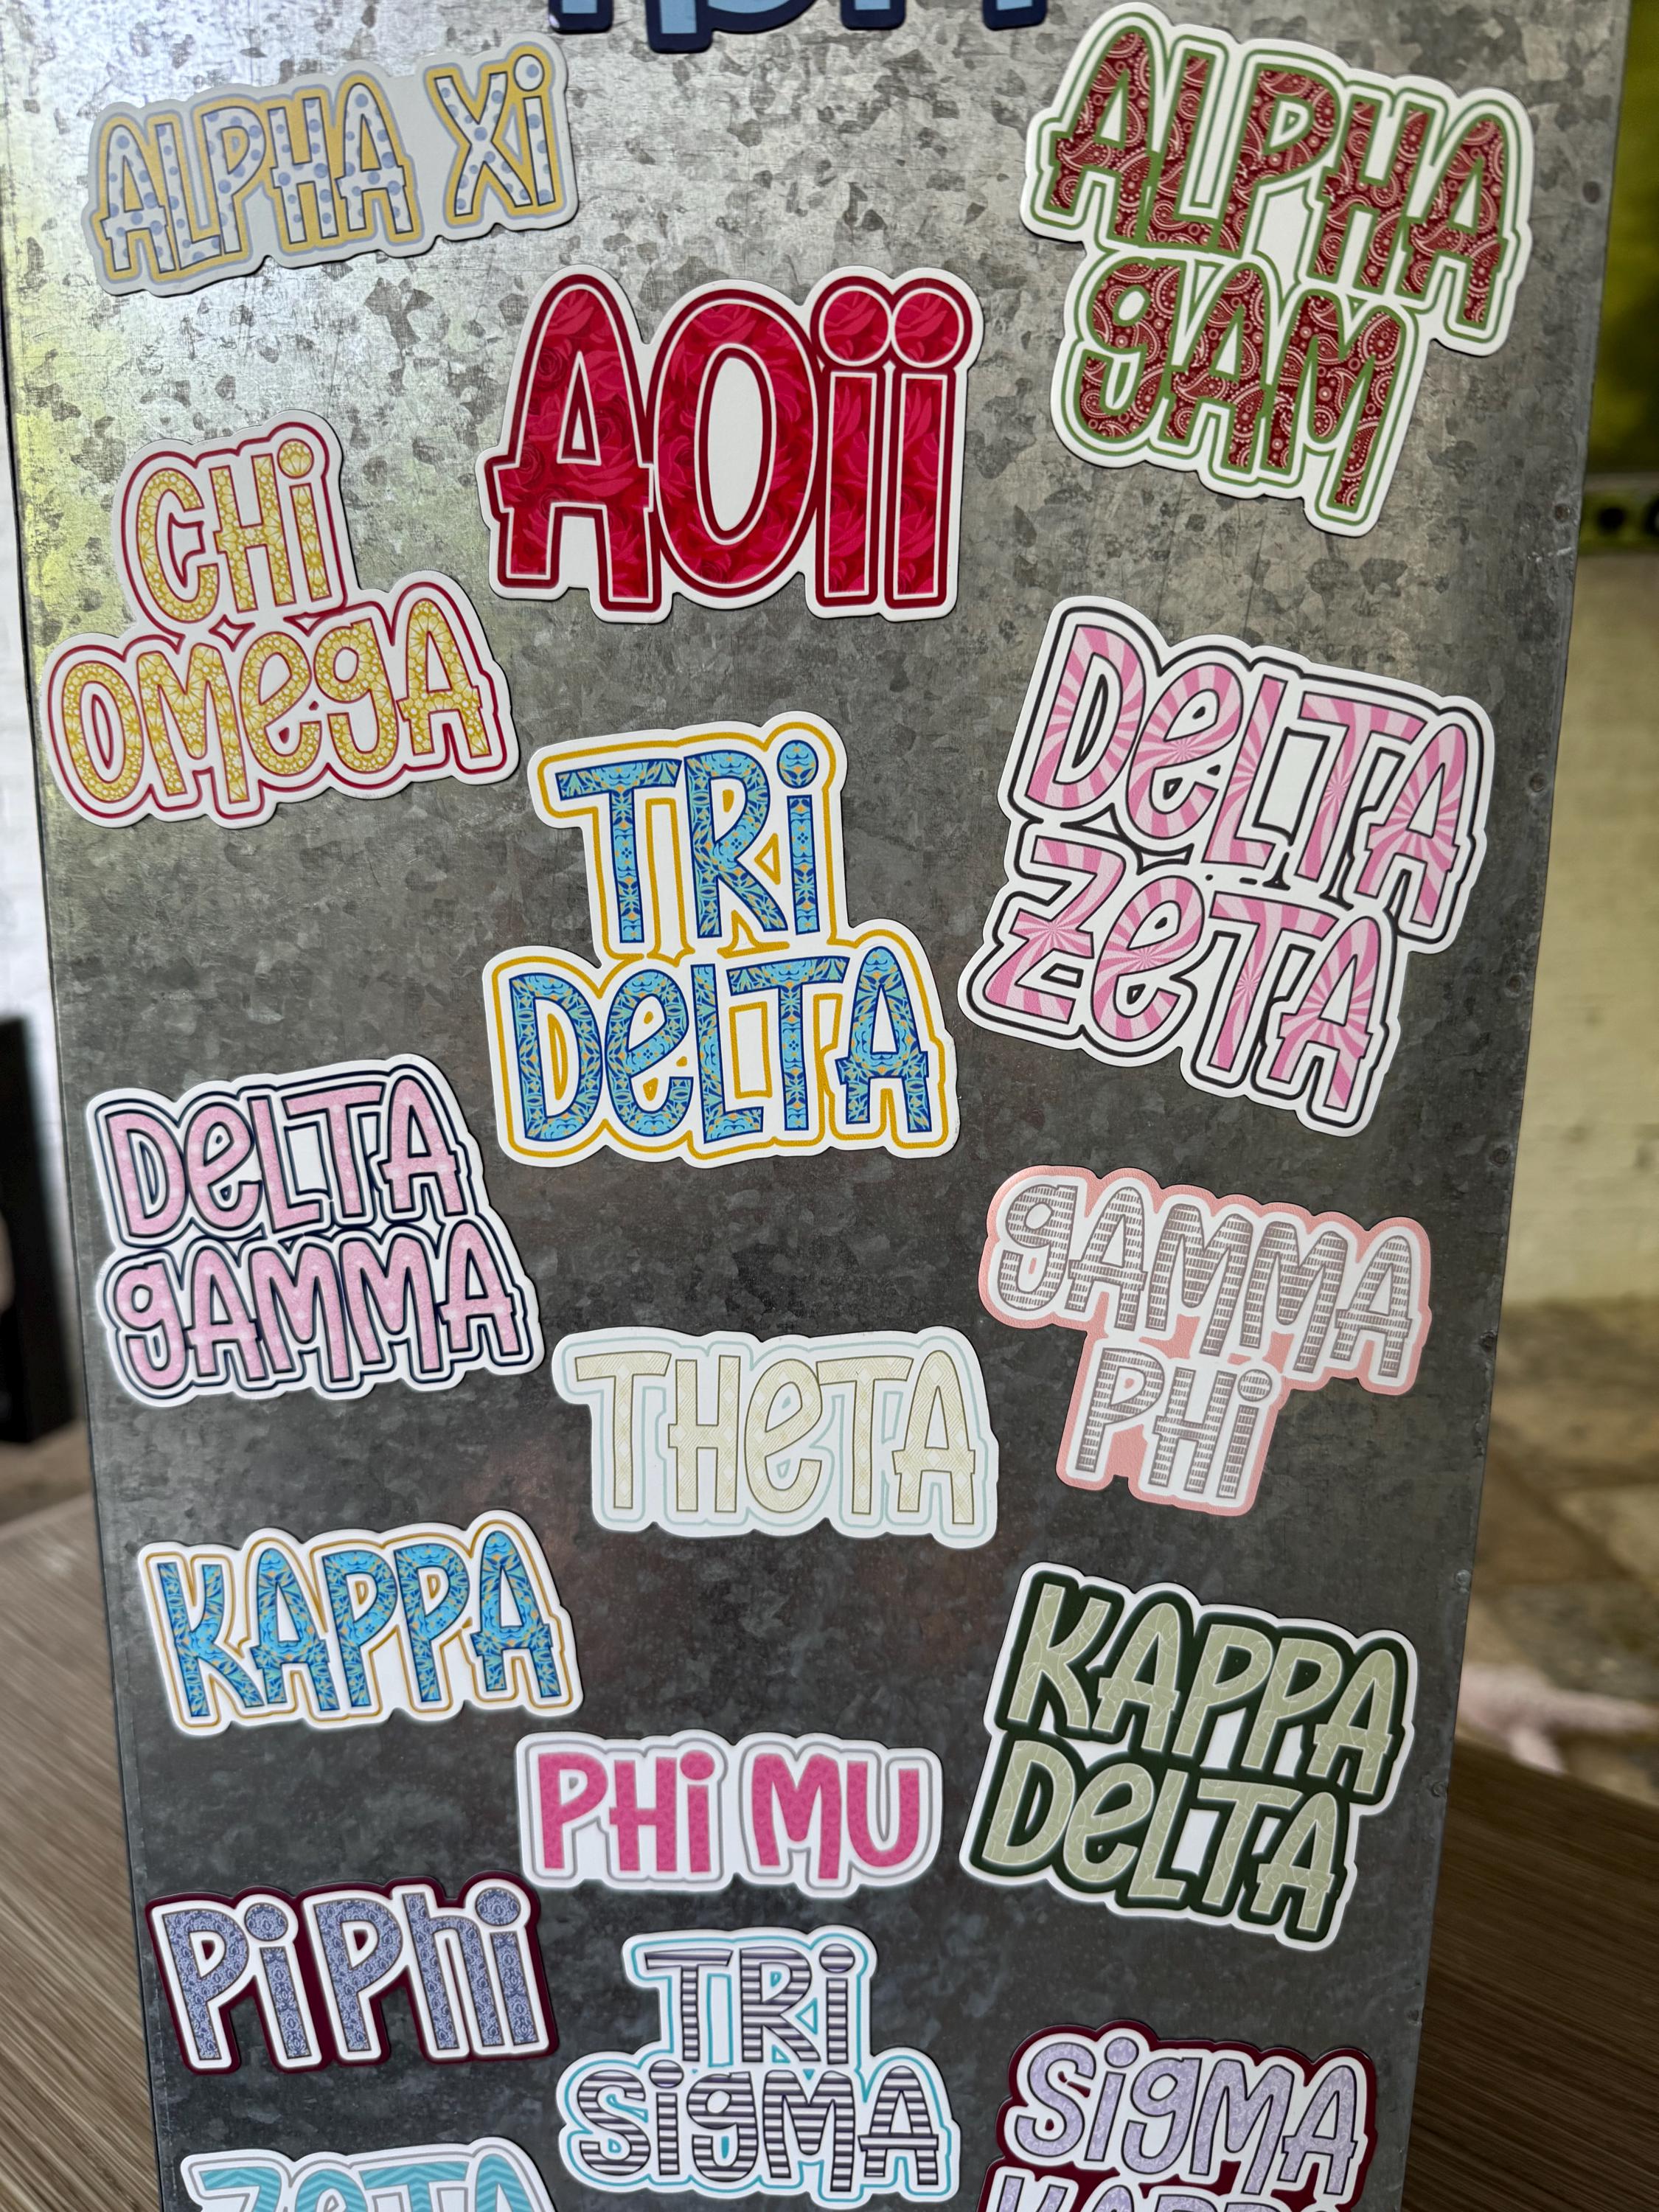 ALPHA Xi
ALPHA
gAM
AOii
CHi
OMegA
DeLTA
ZeTA
TRi
DeLTA
DeLTA
gAMMA
gAMMA
PHi
THeTA
KAPPA
KAPPA
DeLTA
PHi MU
Pi Phi
TRi
SigMA
SigMA
KAPPA
ZeTA